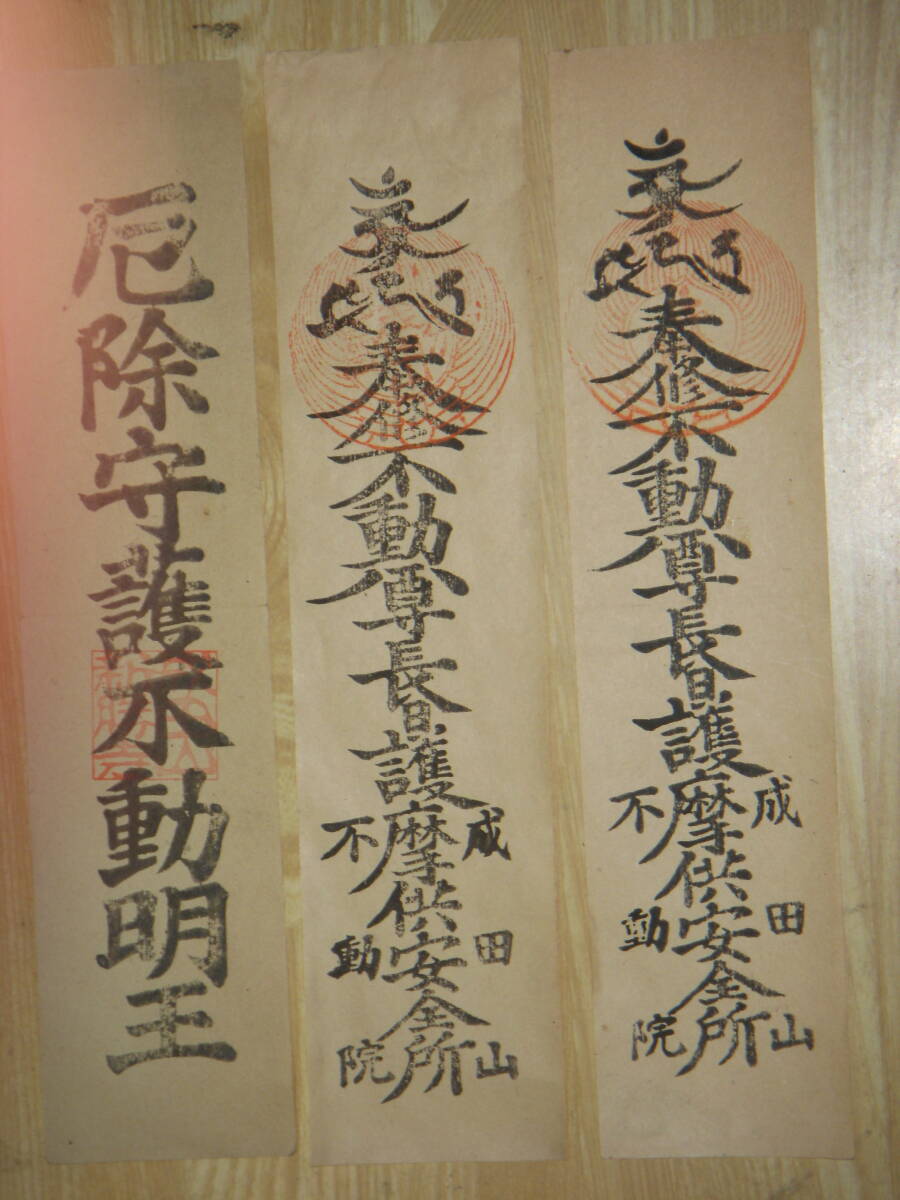 奉修不動尊長日護摩供安全所
成田山
不動院
奉修不動尊長日護摩供安全所
成田山
不動院
厄除守護不動明王